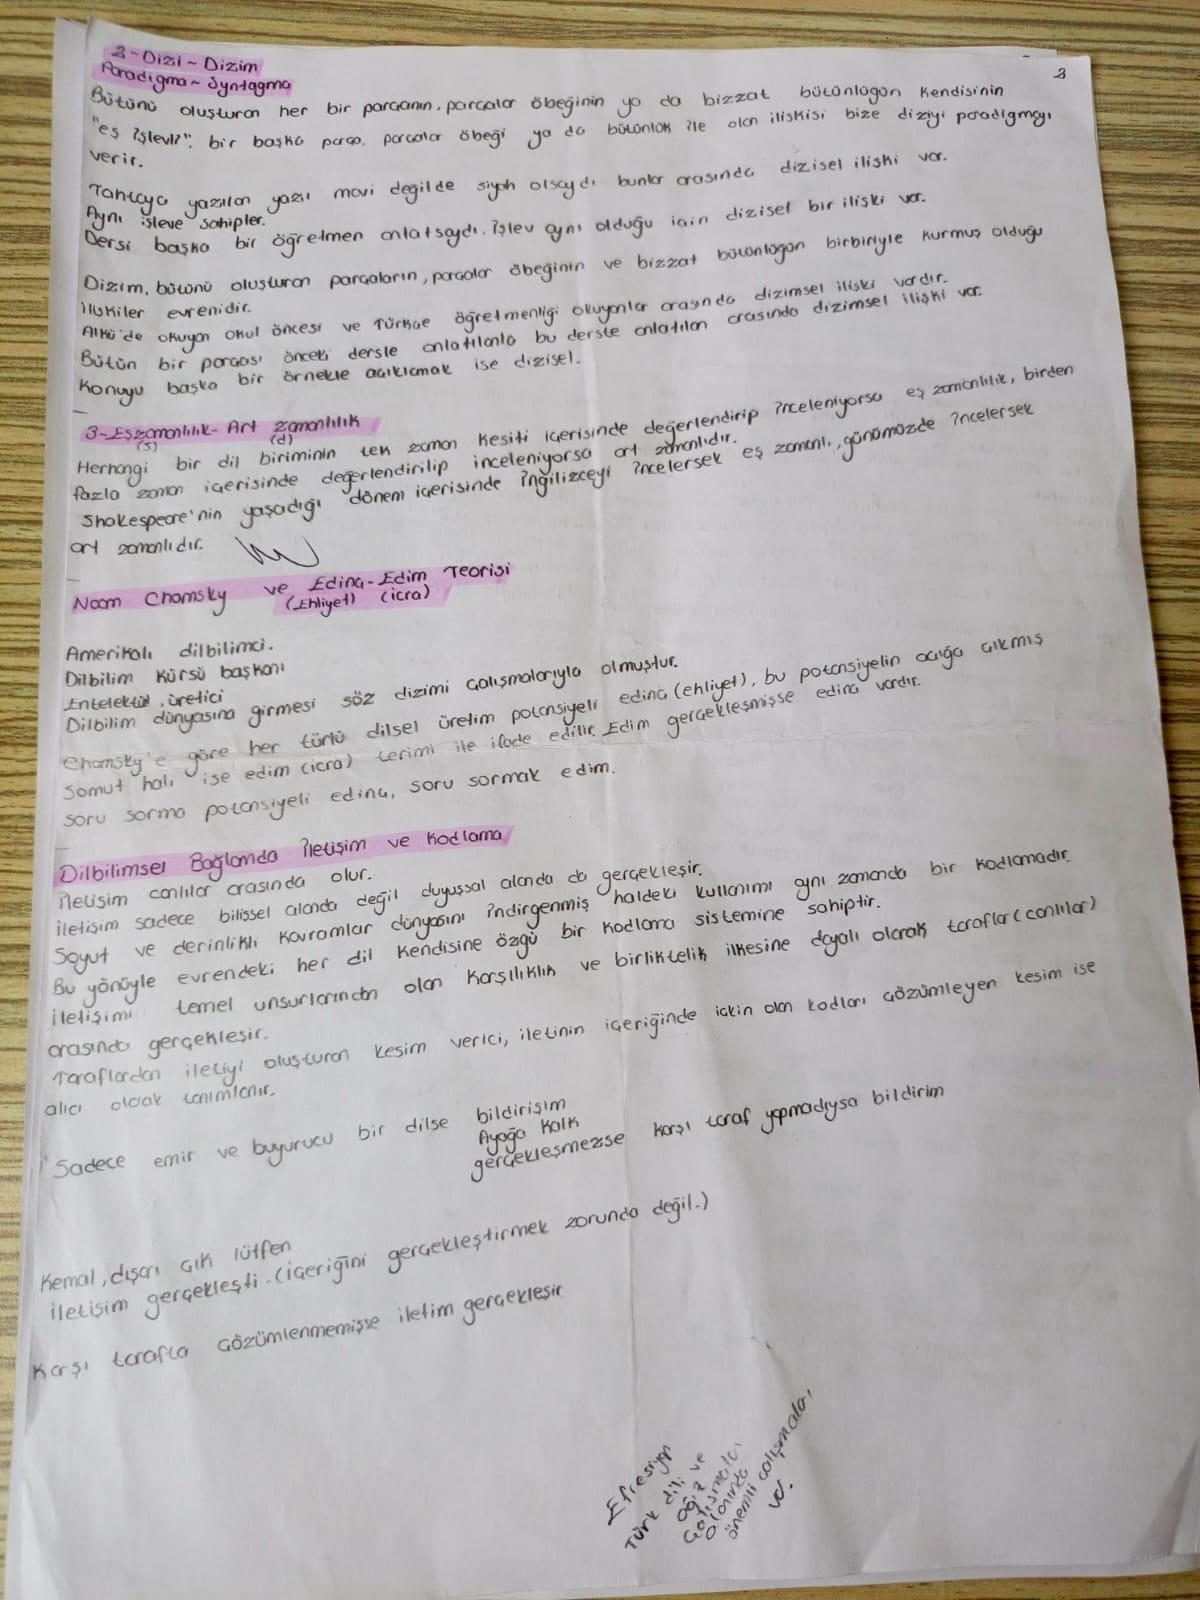 3
2-Dizi ~ Dizim
Paradigma ~ Syntagma
Bütünü oluşturan her bir parçanın, parçalar öbeğinin ya da bizzat bütünlüğün kendisinin
"eş işlevli", bir başka parça, parçalar öbeği ya da bütünlük ile olan ilişkisi bize diziyi paradigmayı
verir.
Tahtaya yazılan yazıl mavi değilde siyah olsaydı bunlar arasında dizisel ilişki var.
Aynı işleve sahipler.
Dersi başka bir öğretmen anlatsaydı. İşlev aynı olduğu için dizisel bir ilişki var.
Dizim, bütünü oluşturan parçaların, parçalar öbeğinin ve bizzat bütünlüğün birbiriyle kurmuş olduğu
ilişkiler evrenidir.
Alkü'de okuyan okul öncesi ve Türkçe öğretmenliği okuyanlar arasında dizimsel ilişki vardır.
Bütün bir parçası önceki dersle anlatılanla bu derste anlatılan arasında dizimsel ilişki var.
Konuyu başka bir örnekle açıklamak ise dizisel.
3-Eşzamanlılık- Art zamanlılık
(s) (d)
Herhangi bir dil biriminin tek zaman kesiti içerisinde değerlendirip inceleniyorsa eş zamanlılık, birden
fazla zaman içerisinde değerlendirilip inceleniyorsa art zamanlıdır.
Shakespeare'nin yaşadığı dönem içerisinde İngilizceyi incelersek eş zamanlı, günümüzde incelersek
art zamanlıdır.
Noam Chomsky ve Edinç-Edim Teorisi
(Ehliyet) (icra)
Amerikalı dilbilimci.
Dilbilim Kürsü başkanı
Entelektüel, üretici
Dilbilim dünyasına girmesi söz dizimi çalışmalarıyla olmuştur.
Chomsky'e göre her türlü dilsel üretim potansiyeli edinç (ehliyet), bu potansiyelin açığa çıkmış
somut hali ise edim (icra) terimi ile ifade edilir. Edim gerçekleşmişse edinç vardır.
soru sorma potansiyeli edinç, soru sormak edim.
Dilbilimsel Bağlamda İletişim ve Kodlama
İletişim canlılar arasında olur.
İletişim sadece bilişsel alanda değil duyuşsal alanda da gerçekleşir.
Soyut ve derinlikli kavramlar dünyasını indirgenmiş haldeki kullanımı aynı zamanda bir kodlamadır.
Bu yönüyle evrendeki her dil kendisine özgü bir kodlama sistemine sahiptir.
İletişimi temel unsurlarından olan karşılıklık ve birliktelik ilkesine dayalı olarak taraflar (canlılar)
arasında gerçekleşir.
Taraflardan iletiyi oluşturan kesim verici, iletinin içeriğinde içkin olan kodları çözümleyen kesim ise
alıcı olarak tanımlanır.
Sadece emir ve buyurucu bir dilse bildirişim
Ayağa Kalk
gerçekleşmezse karşı taraf yapmadıysa bildirim
Kemal, dışarı çık lütfen
iletişim gerçekleşti. (içeriğini gerçekleştirmek zorunda değil.)
Karşı tarafta çözümlenmemişse iletim gerçekleşir
Efresiyap
Türk dili ve
ağız
alanında
önemli çalışmala,
var.